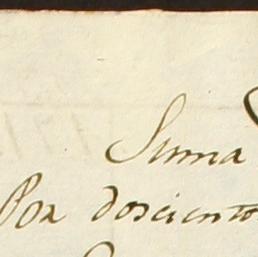 Suma
Por dosciento